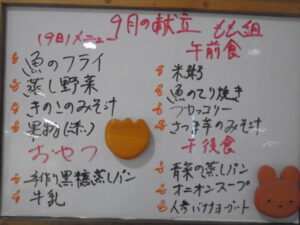 9月の献立 もも組
19日メニュー
魚のフライ
蒸し野菜
きのこのみそ汁
おやつ
手作り黒糖蒸しパン
牛乳
午前食
米粥
魚のてり焼き
ブロッコリー
さつま芋のみそ汁
午後食
青菜の蒸しパン
オニオンスープ
人参バナナヨーグルト